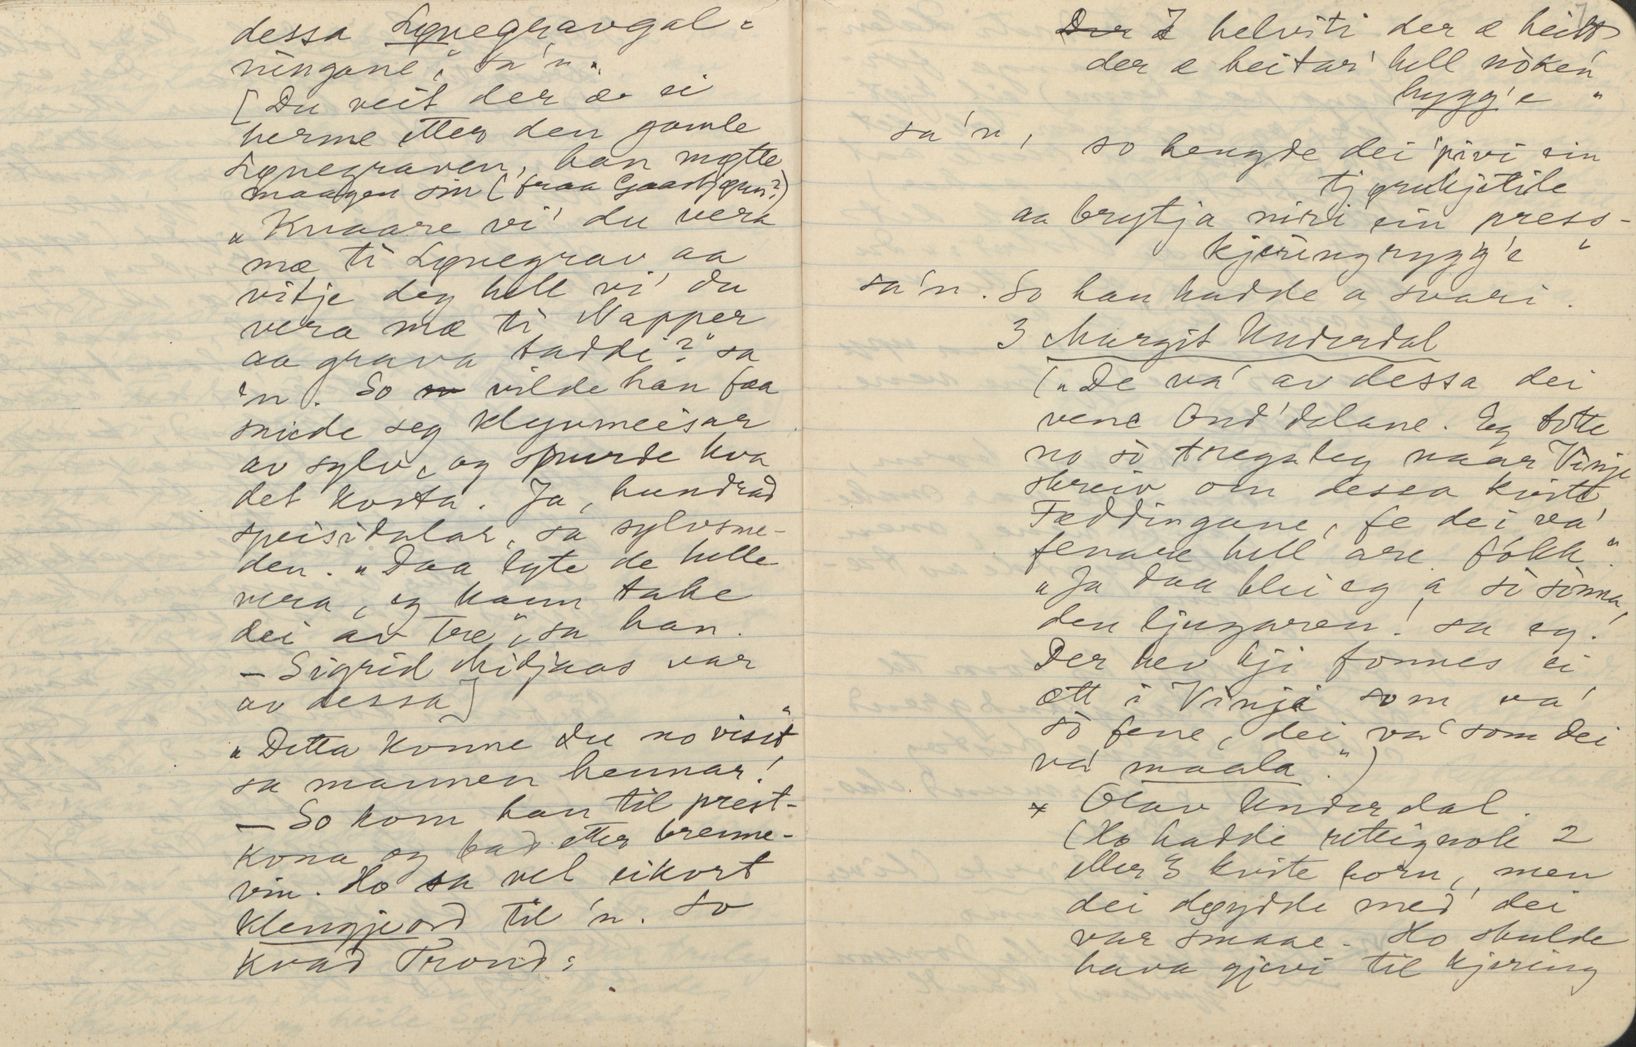 dessa Lønegravgal-
ningane", sa'n".
[Du veit der æ ei
herme etter den gamle
Lønegraven, han møtte
maagen sin (fraa Gaastjønn?)
"Knaare vi' du vera
mæ ti Lønegrav aa
vitje deg hell vi' du
vera mæ ti Napper
aa grava taddi?" sa
'n. So sa vilde han faa
smide seg kløvmeisar
av sylv, og spurde kva
det kosta. Ja, hundrad
speisidalar, sa sylvsme-
den. "Daa lyte de helle
vera, eg kann take
dei av tre", sa han.
— Sigrid Midjaas var
av dessa]
"Detta konne du no visst"
sa mannen hennar!
— So kom han til prest-
kona og bad etter brenne-
vin. Ho sa vel eikort
klengjeord til 'n. So
kvad Trond:
Der I helviti der æ heitt
der æ heitar' hell nòken
hygg'e "
sa'n,
so hengde dei 'pivi ein
tjørukjetile
aa brytja niri ein prest-
kjeringrygg'e "
sa'n. So han hadde a svari.
3 Margit Underdal
("De va' av dessa dei
vene Ond'dalane. Eg totte
no sò tregeleg naar Vinje
skreiv om dessa kvite
Fæddingane, fe dei va'
fenare hell are fòlk".
"Ja daa blei eg a sò sinna,
den ljugaren! sa eg!
Der hev kji fonnes ei
ætt i Vinje som va'
sò fene, dei va' som dei
va' maala".)
× Olav Underdal.
(Ho hadde rettignok 2
eller 3 kvite born, men
dei døydde med dei
var smaae. Ho skulde
hava gjevi til kjering